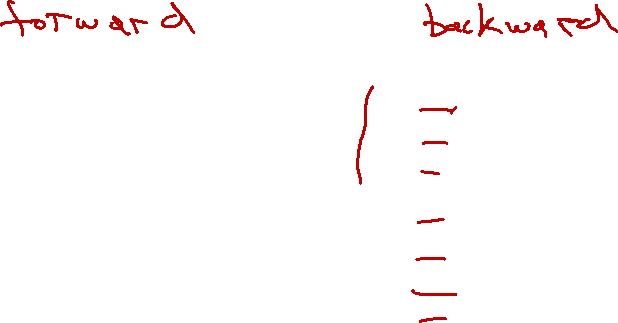 forward backward